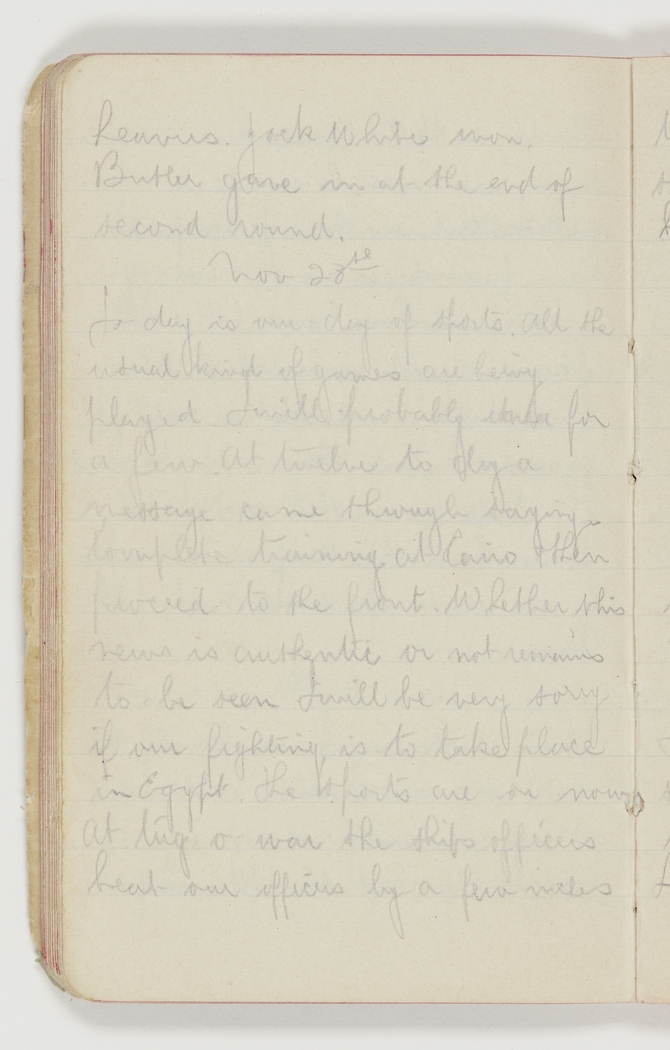 heavies. Jock White won.
Butler gave in at the end of
second round.
Nov 28th
To day is our day of sports. All the
usual kind of games are being
played. I will probably enter for
a few. At twelve to day a
message came through saying,
complete training at Cairo then
proceed to the front. Whether this
news is authentic or not remains
to be seen I will be very sorry
if our fighting is to take place
in Egypt. The sports are on now
At tug o war the ships officers
beat our officers by a few inches